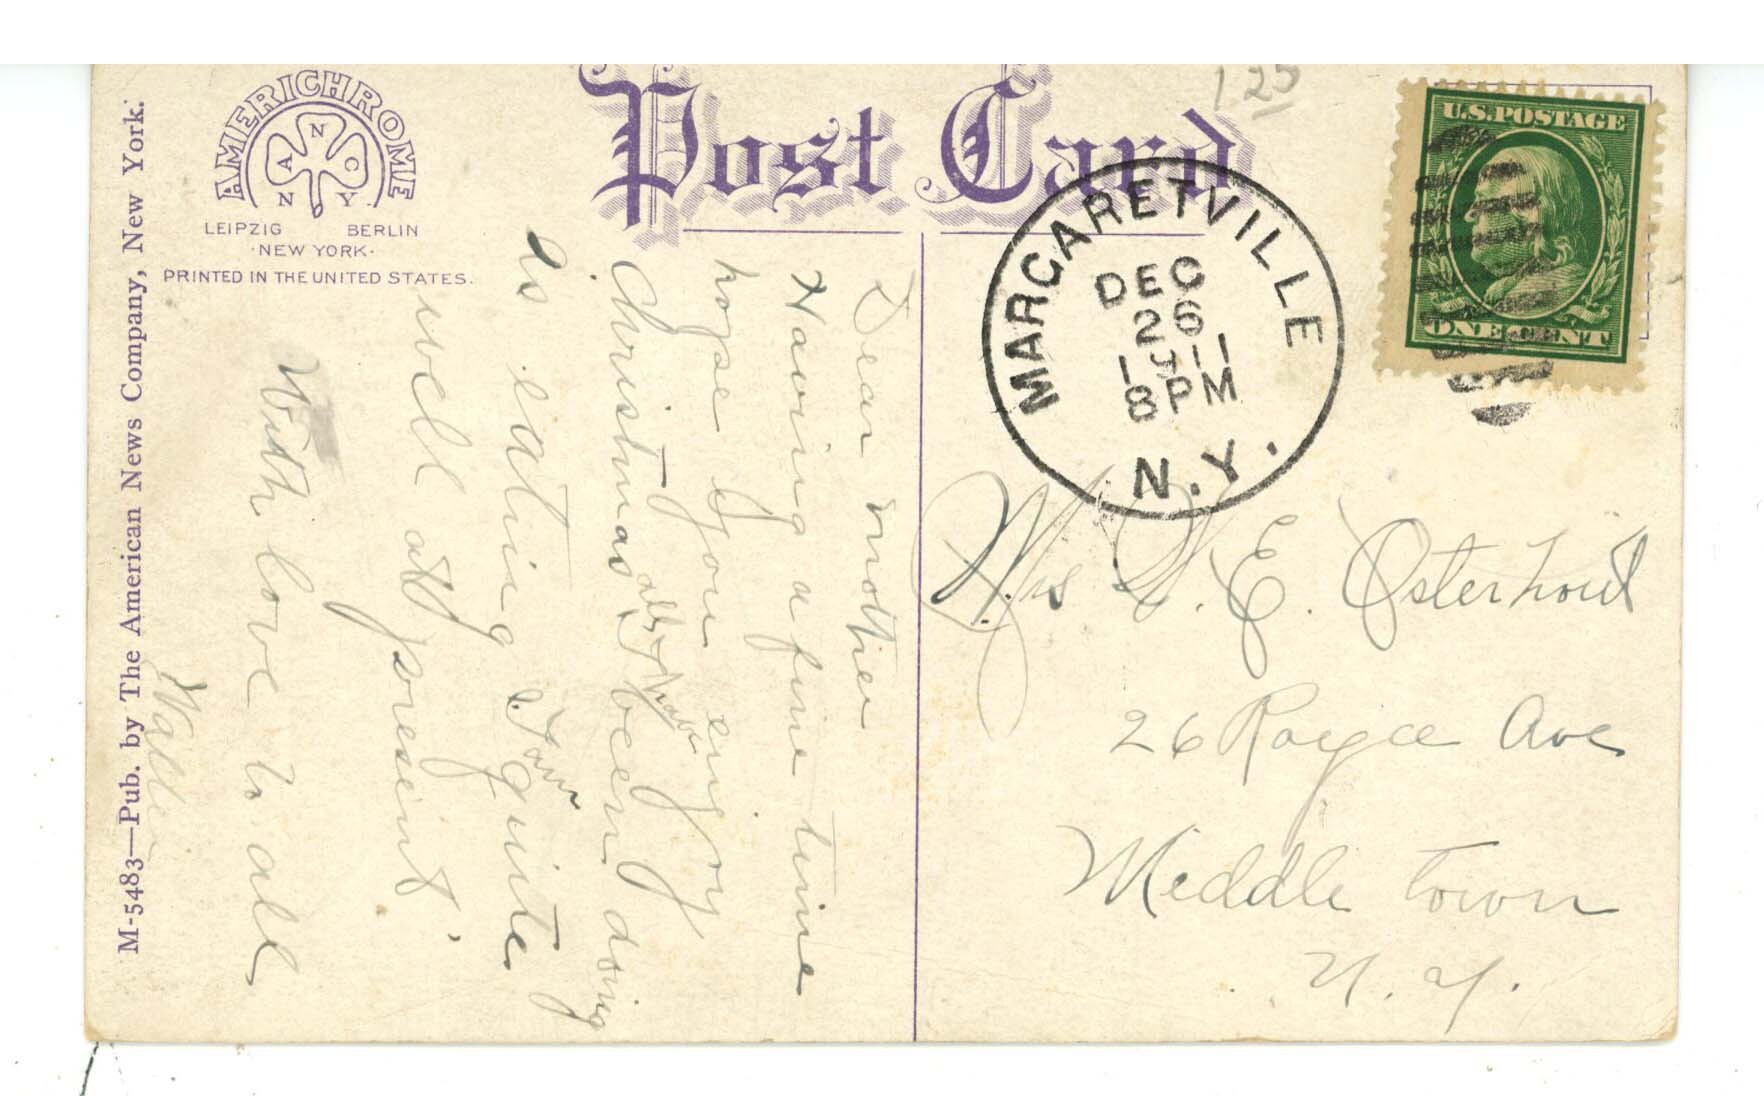 AMERICHROME
N A N C Y
LEIPZIG BERLIN
·NEW YORK·
PRINTED IN THE UNITED STATES.
M-5483—Pub. by The American News Company, New York.
Post Card
125
U.S. POSTAGE
ONE CENT
MARGARETVILLE
DEC
26
1911
8 PM
N.Y.
Dear Mother
Having a fine time
hope you enjoy
Christmas, all I have been doing
is eating. I am quite
well at present.
With love to all
Walter
Mrs W. E. Osterhout
26 Royce Ave
Middle town
N. Y.